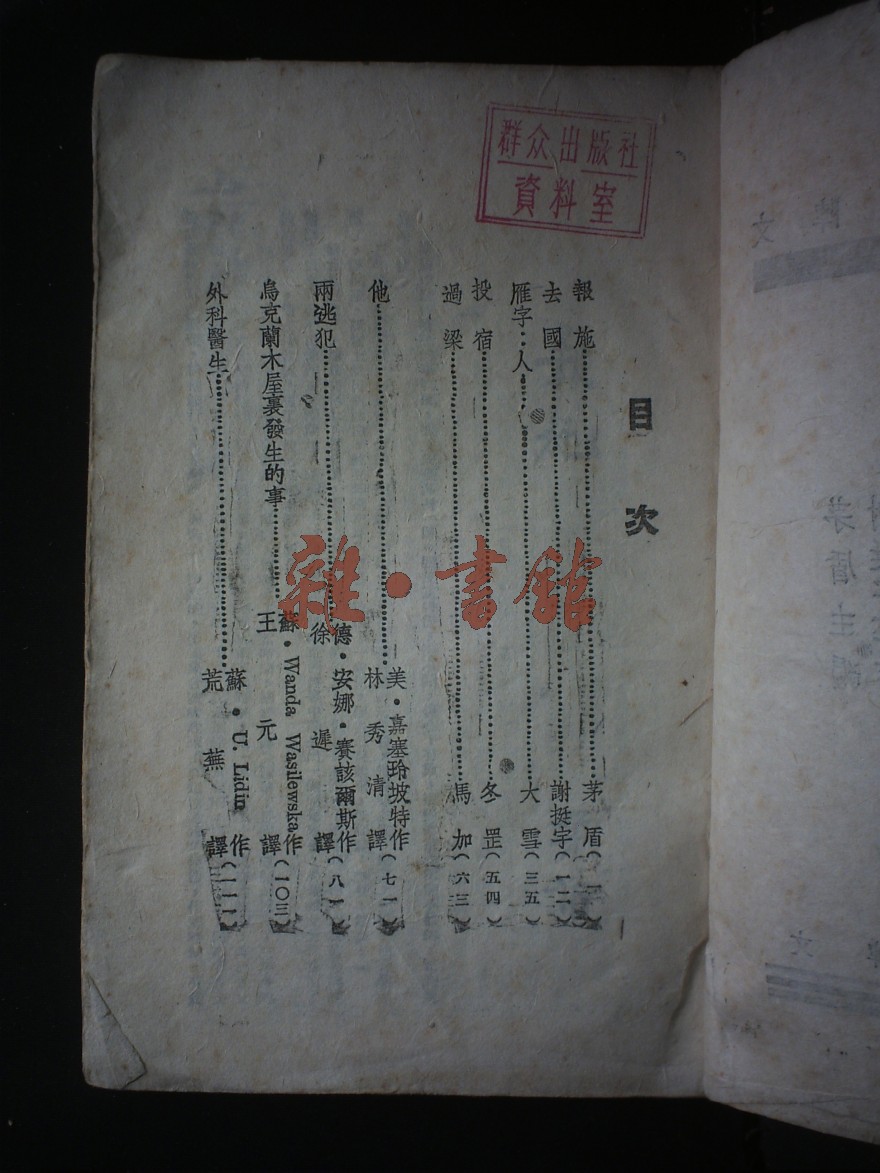 群众出版社
資料室
目次
報施……茅盾(一)
去國……謝挺宇(一二)
雁字‥人……大雪(三五)
投宿……冬罡(五四)
過梁……馬加(六三)
他……美·嘉塞玲坡特作 林秀清譯(七一)
兩逃犯……德·安娜·賽該爾斯作 徐遲譯(八一)
烏克蘭木屋裏發生的事……蘇·Wanda Wasilewska作 王元譯(一〇三)
外科醫生……蘇·U. Lidin作 荒蕪譯(一一一)
雜·書館
茅盾主
文